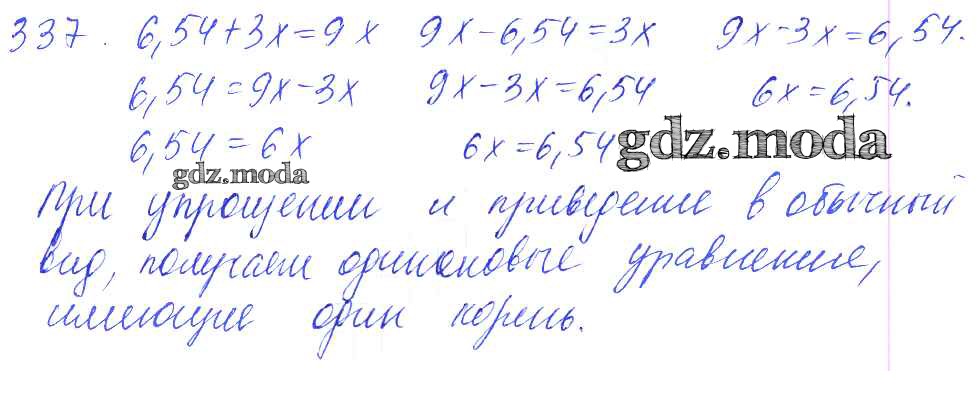 337. 6,54+3x=9x 9x-6,54=3x 9x-3x=6,54.
6,54=9x-3x 9x-3x=6,54 6x=6,54.
6,54=6x 6x=6,54 gdz.moda
gdz.moda
При упрощении и приведение в обычный
вид, получаем одинаковые уравнение,
имеющие один корень.